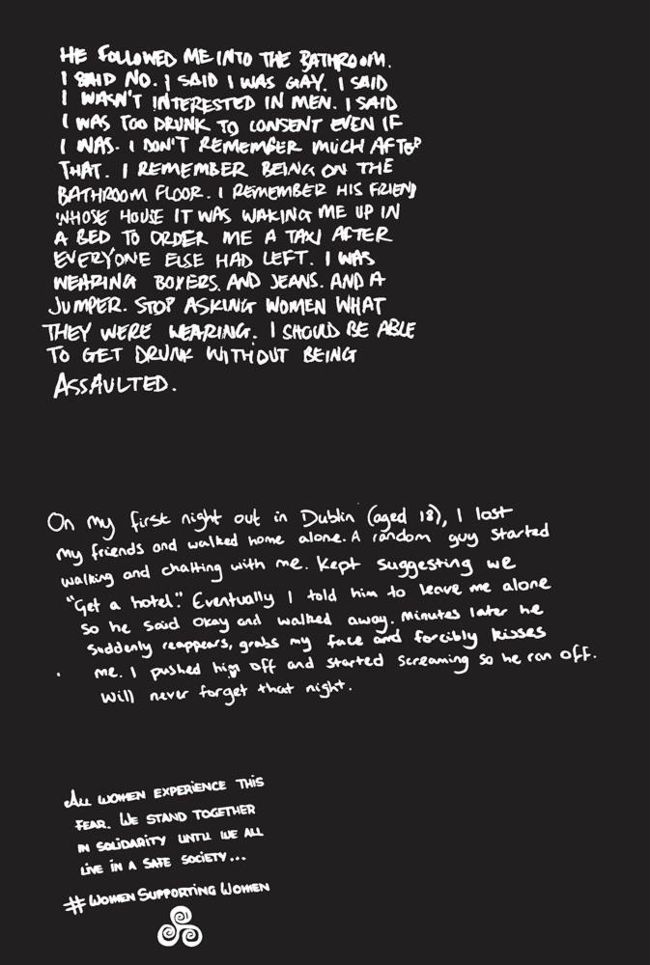 HE FOLLOWED ME INTO THE BATHROOM.
I SAID NO. I SAID I WAS GAY. I SAID
I WASN'T INTERESTED IN MEN. I SAID
I WAS TOO DRUNK TO CONSENT EVEN IF
I WAS. I DON'T REMEMBER MUCH AFTER
THAT. I REMEMBER BEING ON THE
BATHROOM FLOOR. I REMEMBER HIS FRIEND
WHOSE HOUSE IT WAS WAKING ME UP IN
A BED TO ORDER ME A TAXI AFTER
EVERYONE ELSE HAD LEFT. I WAS
WEARING BOXERS. AND JEANS. AND A
JUMPER. STOP ASKING WOMEN WHAT
THEY WERE WEARING. I SHOULD BE ABLE
TO GET DRUNK WITHOUT BEING
ASSAULTED.
On my first night out in Dublin (aged 18), I lost
my friends and walked home alone. A random guy started
walking and chatting with me. Kept suggesting we
"Get a hotel". Eventually I told him to leave me alone
so he said okay and walked away. Minutes later he
suddenly reappears, grabs my face and forcibly kisses
me. I pushed him off and started screaming so he ran off.
Will never forget that night.
ALL WOMEN EXPERIENCE THIS
FEAR. WE STAND TOGETHER
IN SOLIDARITY UNTIL WE ALL
LIVE IN A SAFE SOCIETY...
#WOMEN SUPPORTING WOMEN